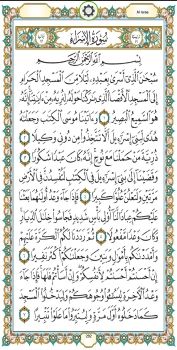 Al-Israa
سُورَةُ الإِسْرَاءِ
بِسْمِ اللَّهِ الرَّحْمَٰنِ الرَّحِيمِ
سُبْحَٰنَ الَّذِي أَسْرَىٰ بِعَبْدِهِ لَيْلًا مِّنَ الْمَسْجِدِ الْحَرَامِ
إِلَى الْمَسْجِدِ الْأَقْصَا الَّذِي بَٰرَكْنَا حَوْلَهُ لِنُرِيَهُ مِنْ ءَايَٰتِنَا إِنَّهُ
هُوَ السَّمِيعُ الْبَصِيرُ ١ وَءَاتَيْنَا مُوسَى الْكِتَٰبَ وَجَعَلْنَٰهُ
هُدًى لِّبَنِي إِسْرَٰٓءِيلَ أَلَّا تَتَّخِذُوا مِن دُونِي وَكِيلًا ٢
ذُرِّيَّةَ مَنْ حَمَلْنَا مَعَ نُوحٍ إِنَّهُ كَانَ عَبْدًا شَكُورًا ٣
وَقَضَيْنَا إِلَىٰ بَنِي إِسْرَٰٓءِيلَ فِي الْكِتَٰبِ لَتُفْسِدُنَّ فِي الْأَرْضِ
مَرَّتَيْنِ وَلَتَعْلُنَّ عُلُوًّا كَبِيرًا ٤ فَإِذَا جَاءَ وَعْدُ أُولَىٰهُمَا بَعَثْنَا
عَلَيْكُمْ عِبَادًا لَّنَا أُولِي بَأْسٍ شَدِيدٍ فَجَاسُوا خِلَٰلَ الدِّيَارِ
وَكَانَ وَعْدًا مَّفْعُولًا ٥ ثُمَّ رَدَدْنَا لَكُمُ الْكَرَّةَ عَلَيْهِمْ
وَأَمْدَدْنَٰكُم بِأَمْوَٰلٍ وَبَنِينَ وَجَعَلْنَٰكُمْ أَكْثَرَ نَفِيرًا ٦
إِنْ أَحْسَنتُمْ أَحْسَنتُمْ لِأَنفُسِكُمْ وَإِنْ أَسَأْتُمْ فَلَهَا فَإِذَا جَاءَ
وَعْدُ الْءَاخِرَةِ لِيَسُءُوا وُجُوهَكُمْ وَلِيَدْخُلُوا الْمَسْجِدَ
كَمَا دَخَلُوهُ أَوَّلَ مَرَّةٍ وَلِيُتَبِّرُوا مَا عَلَوْا تَتْبِيرًا ٧